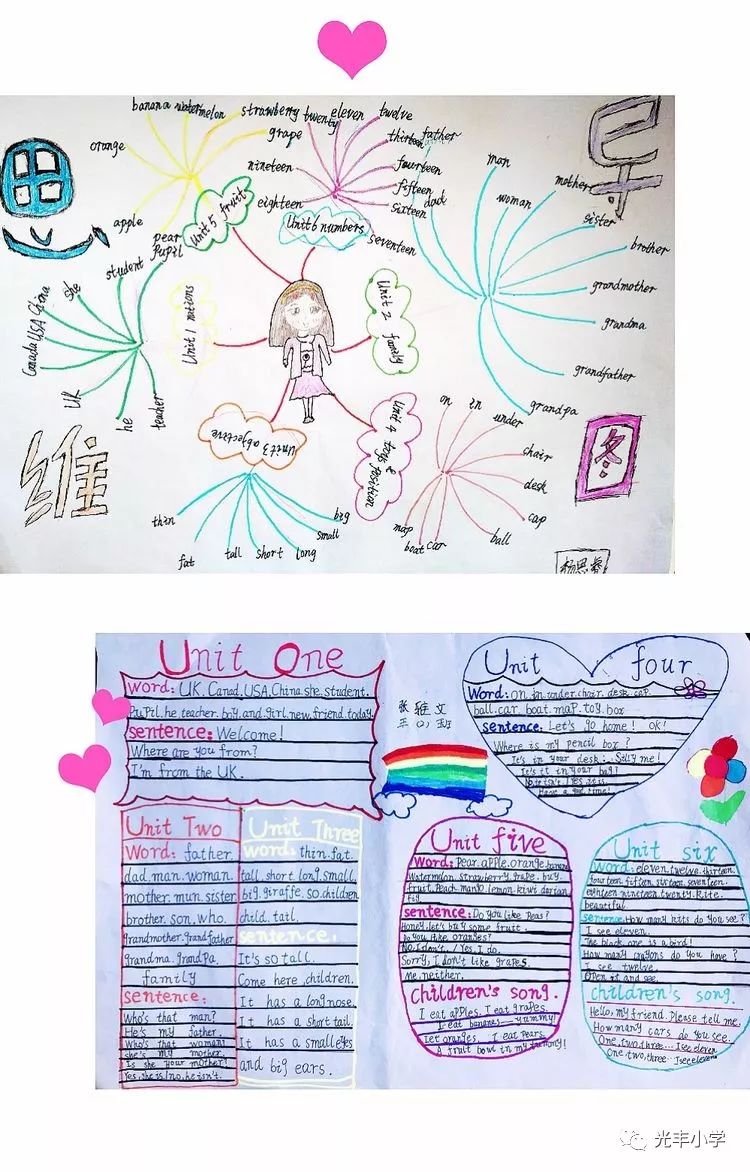 思
维
导
图
banana
watermelon
strawberry
grape
orange
apple
pear
Unit 5 fruit
twenty
eleven
twelve
thirteen
fourteen
fifteen
sixteen
seventeen
eighteen
nineteen
Unit 6 numbers
father
dad
man
woman
mother
sister
brother
grandmother
grandma
grandfather
grandpa
Unit 2 family
Pupil
student
she
China
USA
Canada
UK
he
teacher
Unit 1 nations
Unit 3 adjective
thin
fat
tall
short
long
small
big
Unit 4 toys & position
on
in
under
chair
desk
cap
ball
car
boat
map
Unit One
word: UK. Canad. USA. China. she. student.
PuPil. he. teacher. boy. and. girl. new. friend. today.
sentence: Welcome!
Where are you from?
I'm from the UK.
张雅文
Unit four
Word: on. in. under. chair. desk. cap.
ball. car. boat. map. toy. box
sentence: Let's go home! OK!
Where is my pencil box?
It's in your desk. Silly me!
Is it in your bag?
No it isn't. / Yes. it is.
Have a good time!
Unit Two
Word: father.
dad. man. woman.
mother. mun. sister.
brother. son. who.
grandmother. grandfather
grandma. grandPa.
family
sentence:
Who's that man?
He's my father.
Who's that woman?
she's my mother.
Is she your mother?
Yes, she is/no, he isn't.
Unit Three
word: thin. fat.
tall. short. long. small.
big. giraffe. so. children.
child. tail.
sentence.
It's so tall.
Come here, children.
It has a long nose.
It has a short tail.
It has a small eyes
and big ears.
Unit five
word: Pear. aPPle. orange. banana
Watermelon. strawberry. grape. buy.
fruit. Peach. mango. lemon. kiwi. durian
fig
sentence: Do you like Peas?
Honey, let's buy some fruit.
Do you like oranges?
No, I don't. / Yes. I do.
Sorry, I don't like grapes.
Me, neither.
children's song.
I eat aPPles. I eat grapes.
I eat bananas— yummy!
I et oranges. I eat Pears.
A fruit bowl in my tummy!
Unit six
word: eleven. twelve. thirteen.
fourteen. fifteen. sixteen. seventeen
eighteen. nineteen. twenty. Kite.
beautiful.
sentence: How many kits do you see?
I see eleven.
The black one is a bird!
How many crayons do you have?
I see twelve.
Open it and see.
children's song.
Hello, my friend. Please tell me.
How many cars do you see.
One. two. three... I see eleven
One. two. three. I see eleven
光丰小学